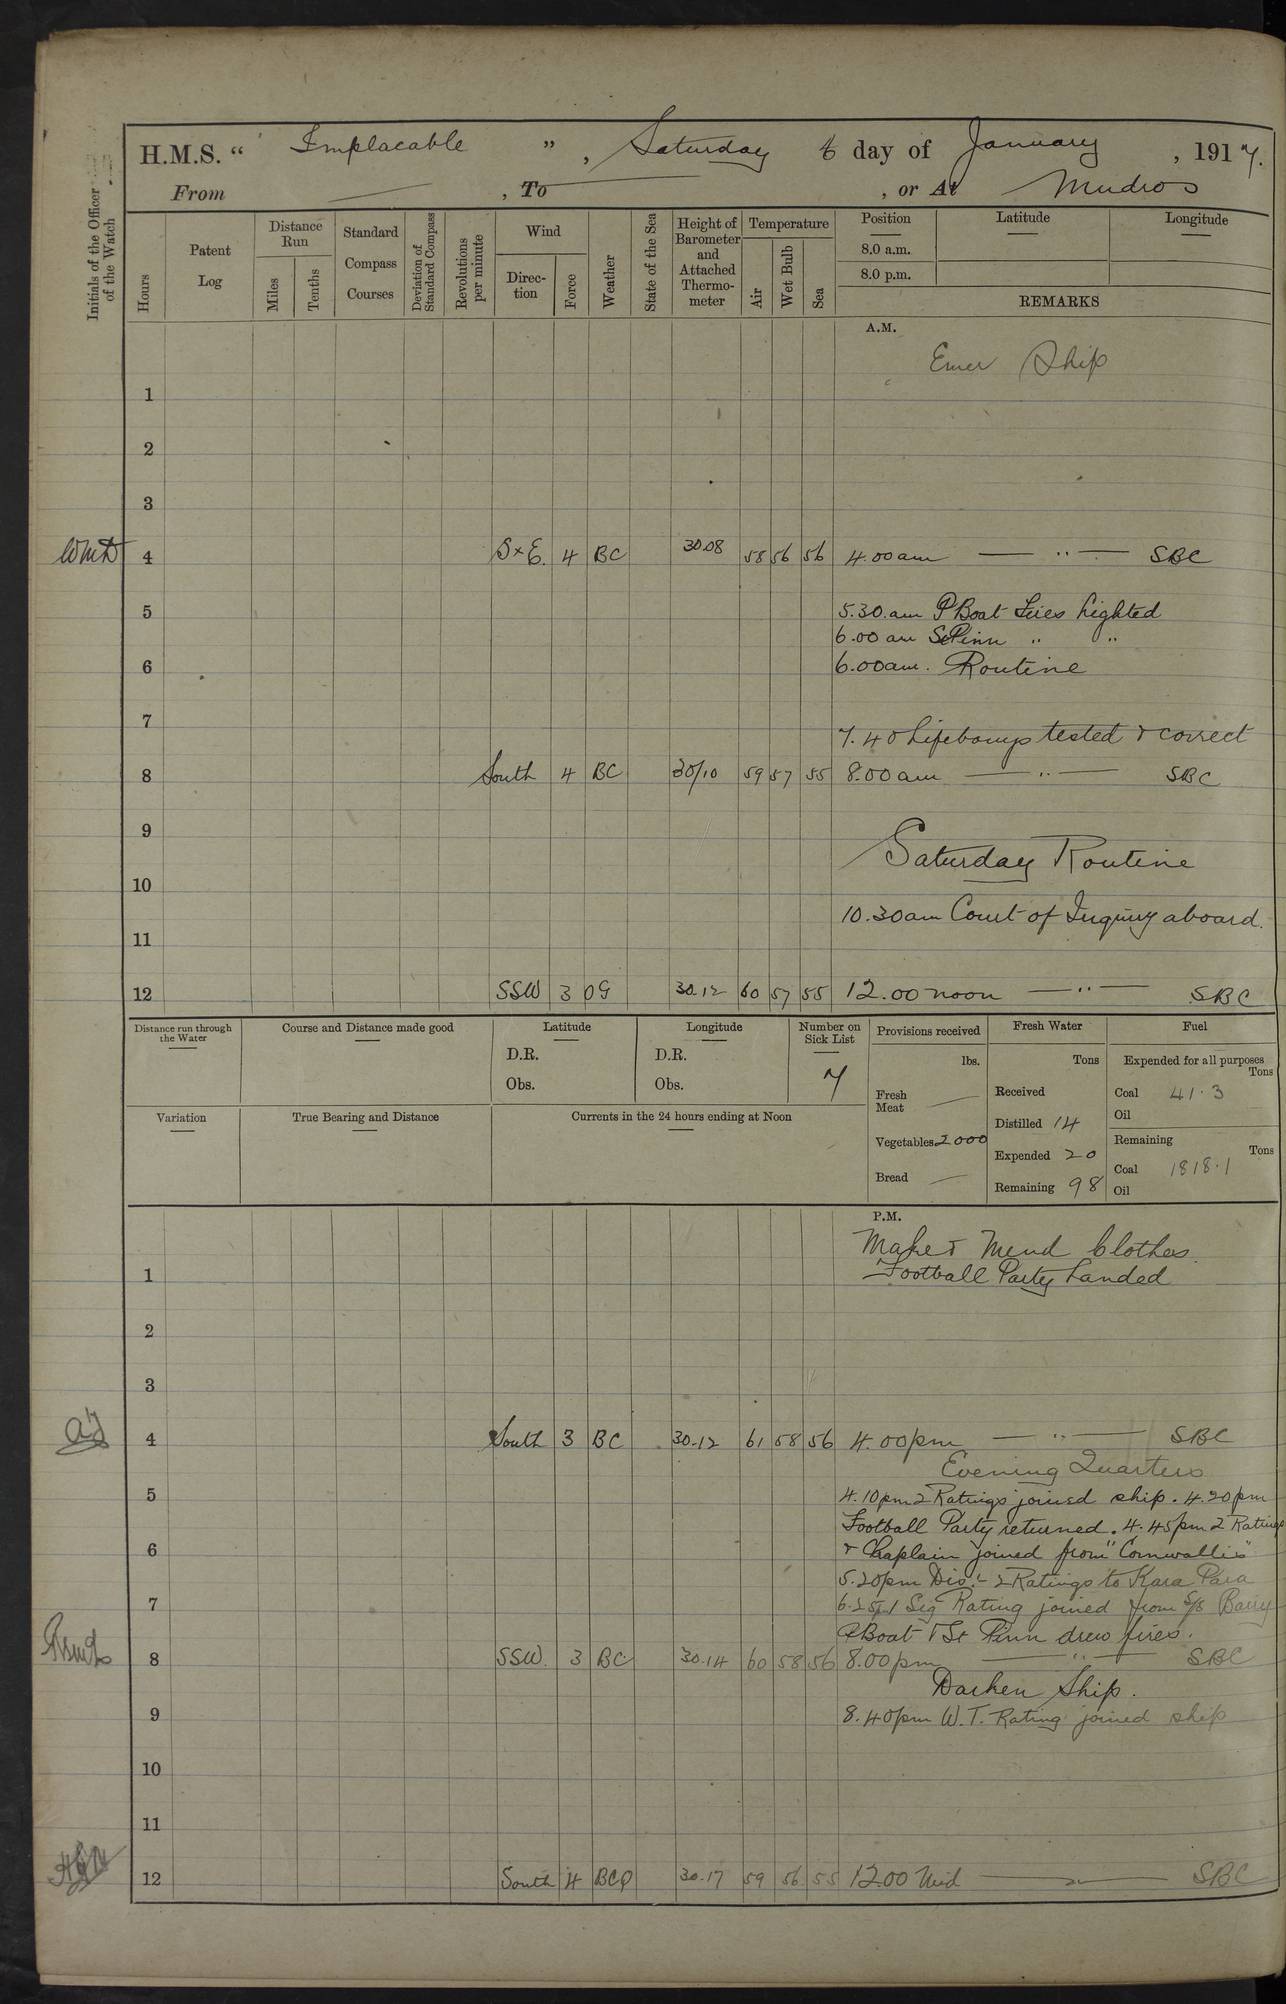 H.M.S. " Implacable " , Saturday 6 day of January , 1917.
From — , To — , or At Mudros
Initials of the Officer of the Watch
Hours
Patent Log
Distance Run
Miles
Tenths
Standard Compass Courses
Deviation of Standard Compass
Revolutions per minute
Wind
Direction
Force
Weather
State of the Sea
Height of Barometer and Attached Thermometer
Temperature
Air
Wet Bulb
Sea
Position Latitude Longitude
8.0 a.m.
8.0 p.m.
REMARKS
A.M.
Ship
1
2
3
4 S×E. 4 BC 30.08 58 56 56 4.00am — " — SBC
5 5.30.am P Boat Fires Lighted
6.00 am St Pinn " "
6 6.00am. Routine
7 7.40 Lifebouys tested & correct
8 South 4 BC 30/10 59 57 55 8.00am — " — SBC
9
Saturday Routine
10
10.30am Court of Inquiry aboard.
11
12 SSW 3 OG 30.12 60 57 55 12.00 noon — " — SBC
Distance run through the Water
Course and Distance made good
Latitude
D.R.
Obs.
Longitude
D.R.
Obs.
Number on Sick List
7
Variation
True Bearing and Distance
Currents in the 24 hours ending at Noon
Provisions received
lbs.
Fresh Meat —
Vegetables 2000
Bread —
Fresh Water
Tons
Received
Distilled 14
Expended 20
Remaining 98
Fuel
Expended for all purposes
Tons
Coal 41.3
Oil
Remaining
Tons
Coal 1818.1
Oil
P.M.
Make & Mend Clothes
1 Football Party Landed
2
3
4 South 3 BC 30.12 61 58 56 4.00pm — " — SBC
Evening Quarters
5 4.10pm 2 Ratings joined ship. 4.20pm
Football Party returned. 4.45pm 2 Ratings
6 & Chaplain joined from "Cornwallis"
5.20pm Disc 2 Ratings to Kara Para
7 6.25p 1 Sig Rating joined from S/S Barry
P Boat & St Pinn drew fires.
8 SSW. 3 BC 30.14 60 58 56 8.00pm — " — SBC
Darken Ship.
9 8.40pm W.T. Rating joined ship
10
11
12 South 4 BCQ 30.17 59 56 55 12.00 Mid — " — SBC